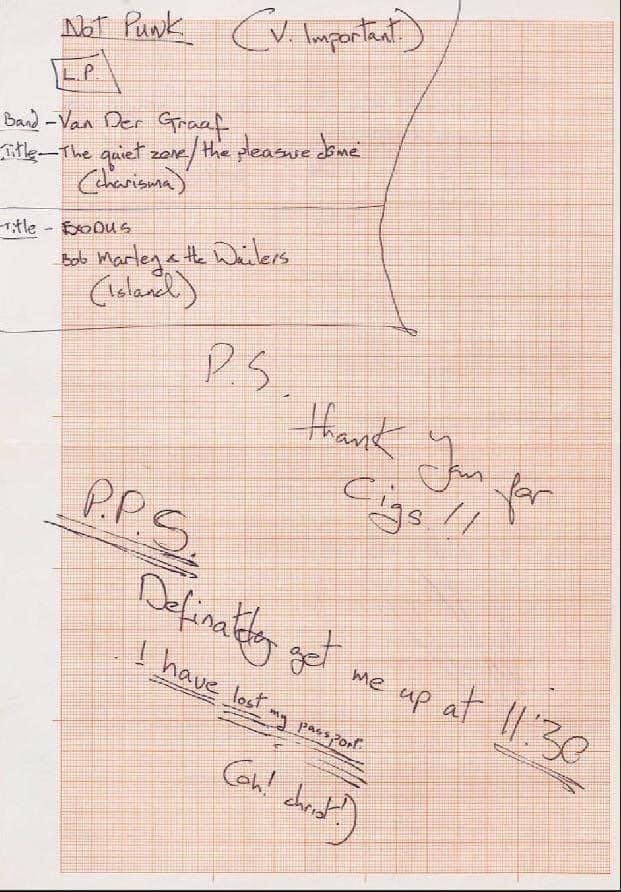 NOT PUNK (V. Important.)
L.P.
Band - Van Der Graaf
Title - The quiet zone/the pleasure dome
(charisma)
Title - EXODUS
Bob Marley & the Wailers
(Island)
P.S.
thank you for
Cigs!!
P.P.S.
Definatley get me up at 11:30
I have lost my passport.
(oh! christ!)